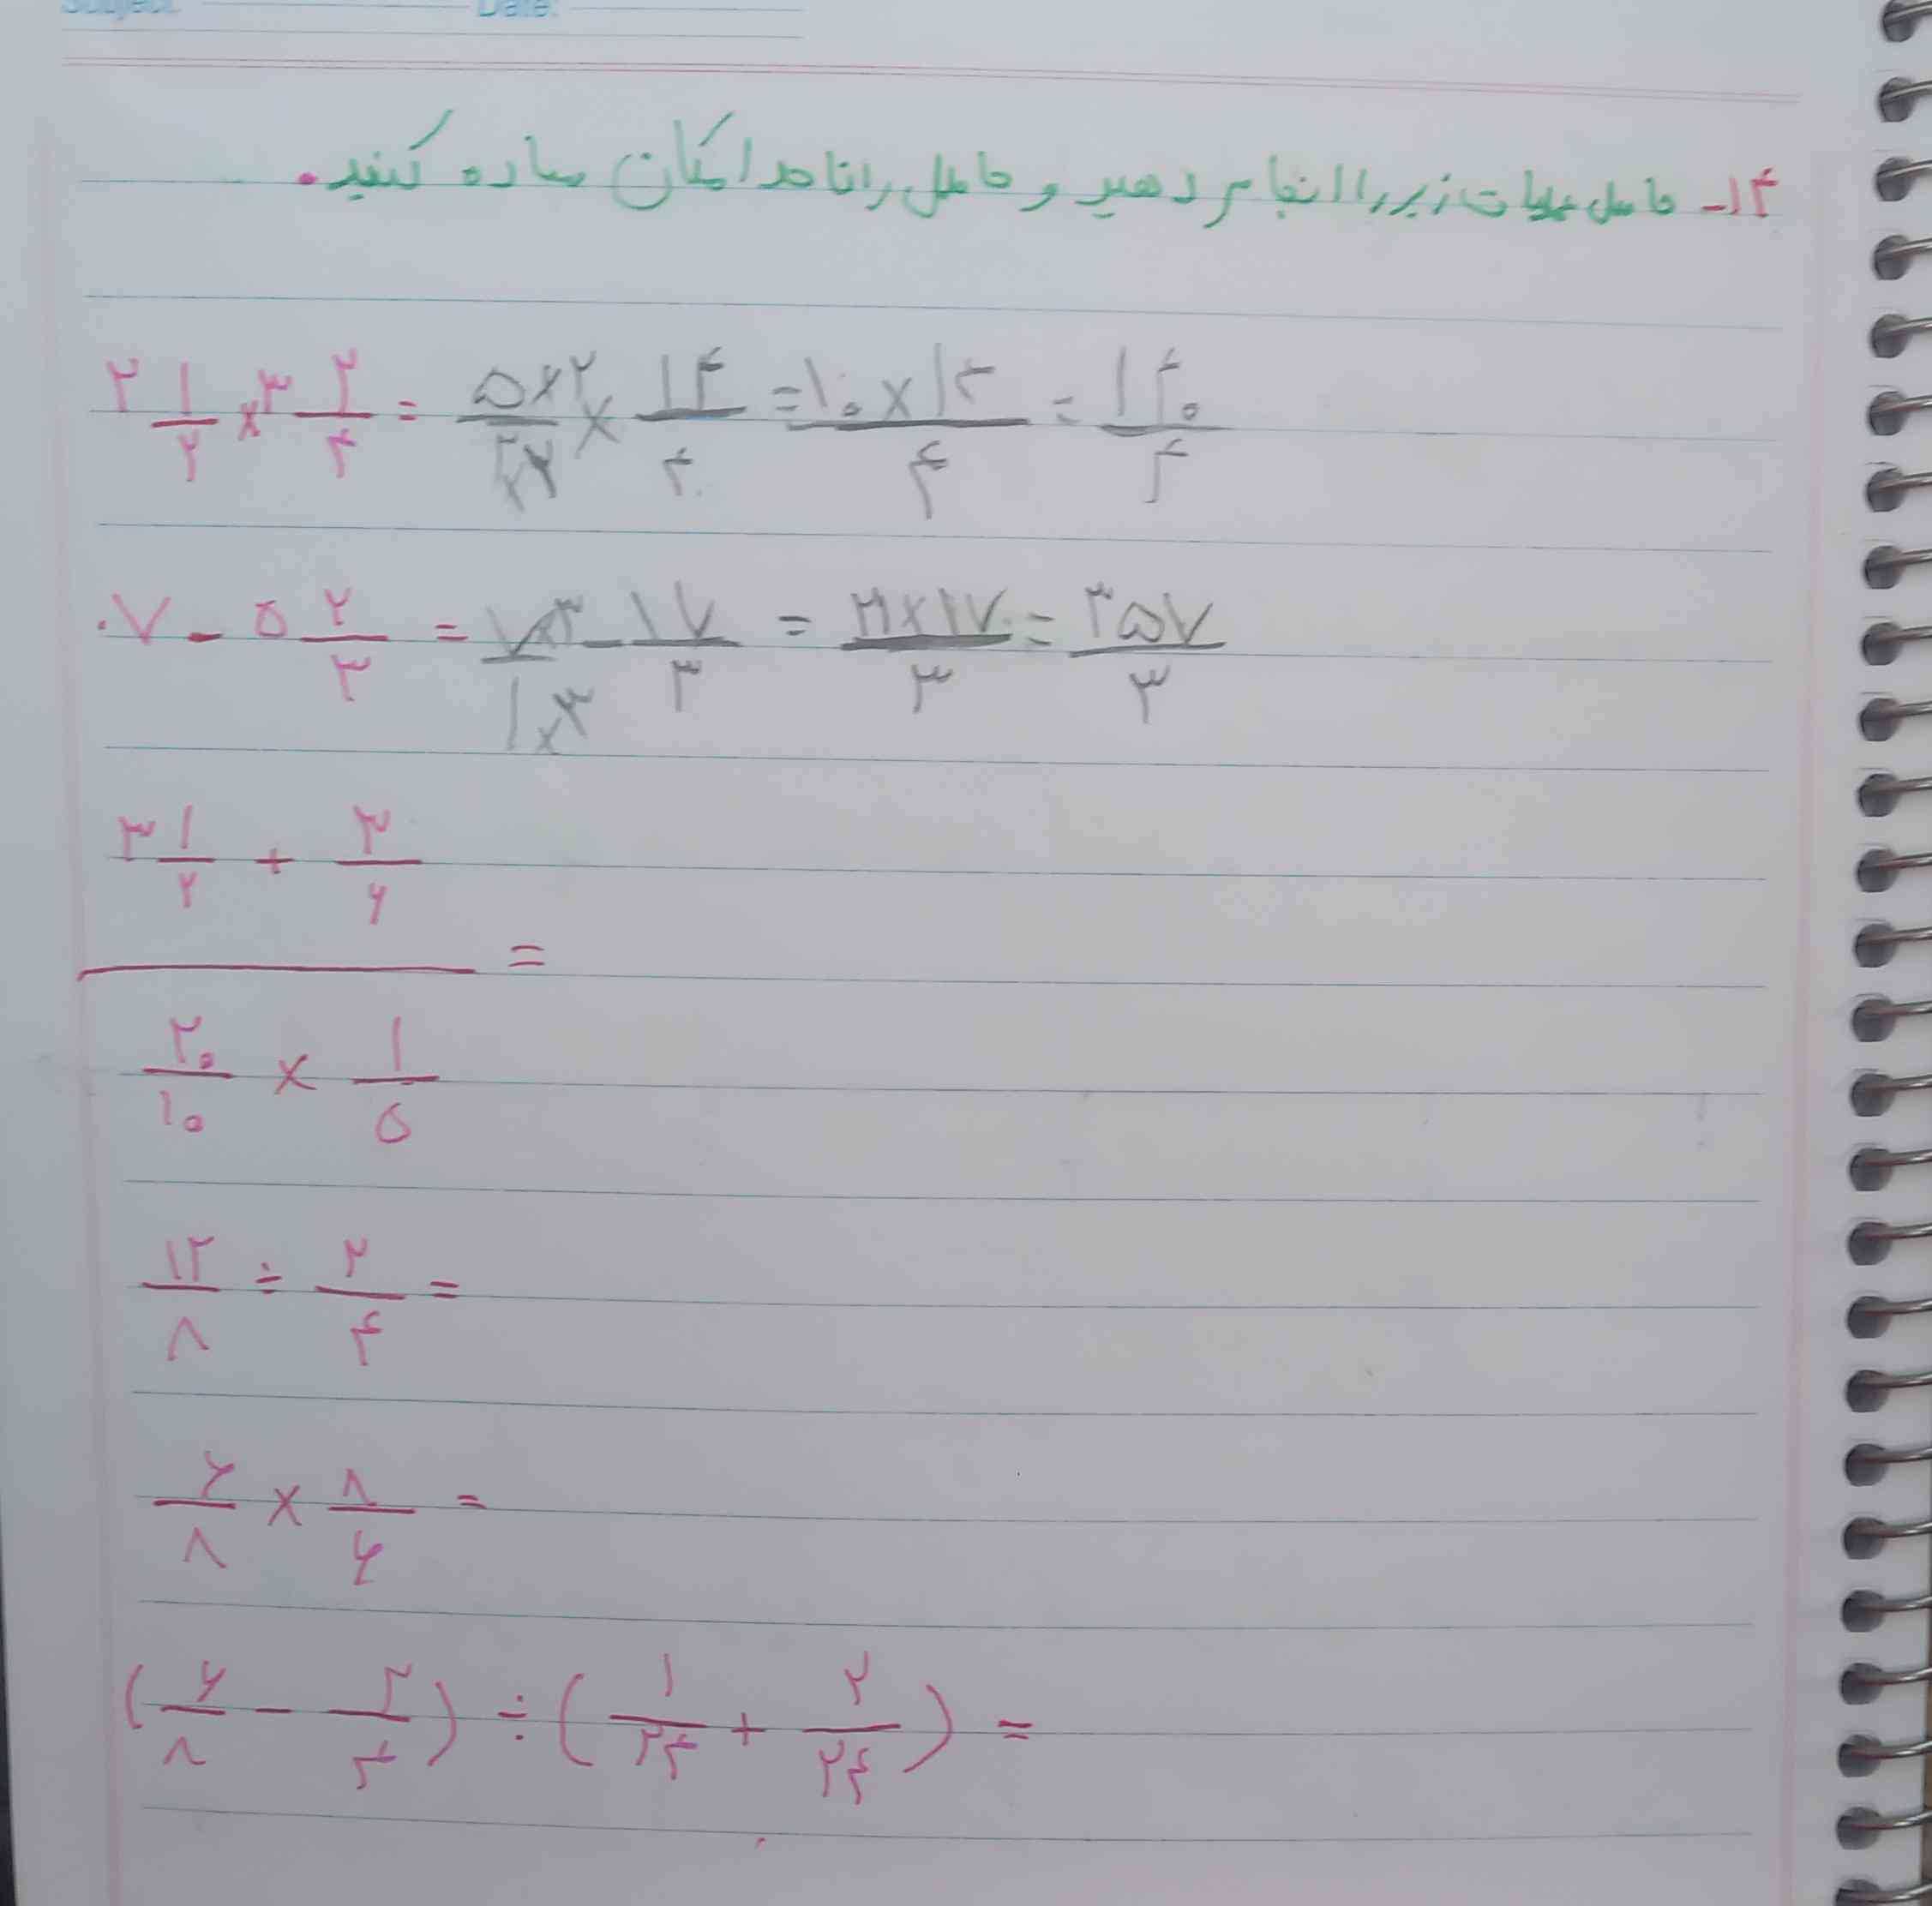 Subject: Date:
۱۴- حاصل عملیات زیر را انجام دهید و حاصل را تا حد امکان ساده کنید.
۲ ۱/۲ × ۳ ۲/۴ = ۵×۲/۲×۲ × ۱۴/۴ = ۱۰×۱۴/۴ = ۱۴۰/۴
۷ - ۵ ۲/۳ = ۷×۳/۱×۳ - ۱۷/۳ = ۲۱×۱۷/۳ = ۳۵۷/۳
۳ ۱/۲ + ۳/۶
=
۲۰/۱۰ × ۱/۵
۱۲/۸ ÷ ۲/۴ =
۶/۸ × ۸/۶ =
(۶/۸ - ۲/۴) ÷ (۱/۲۴ + ۲/۲۴) =